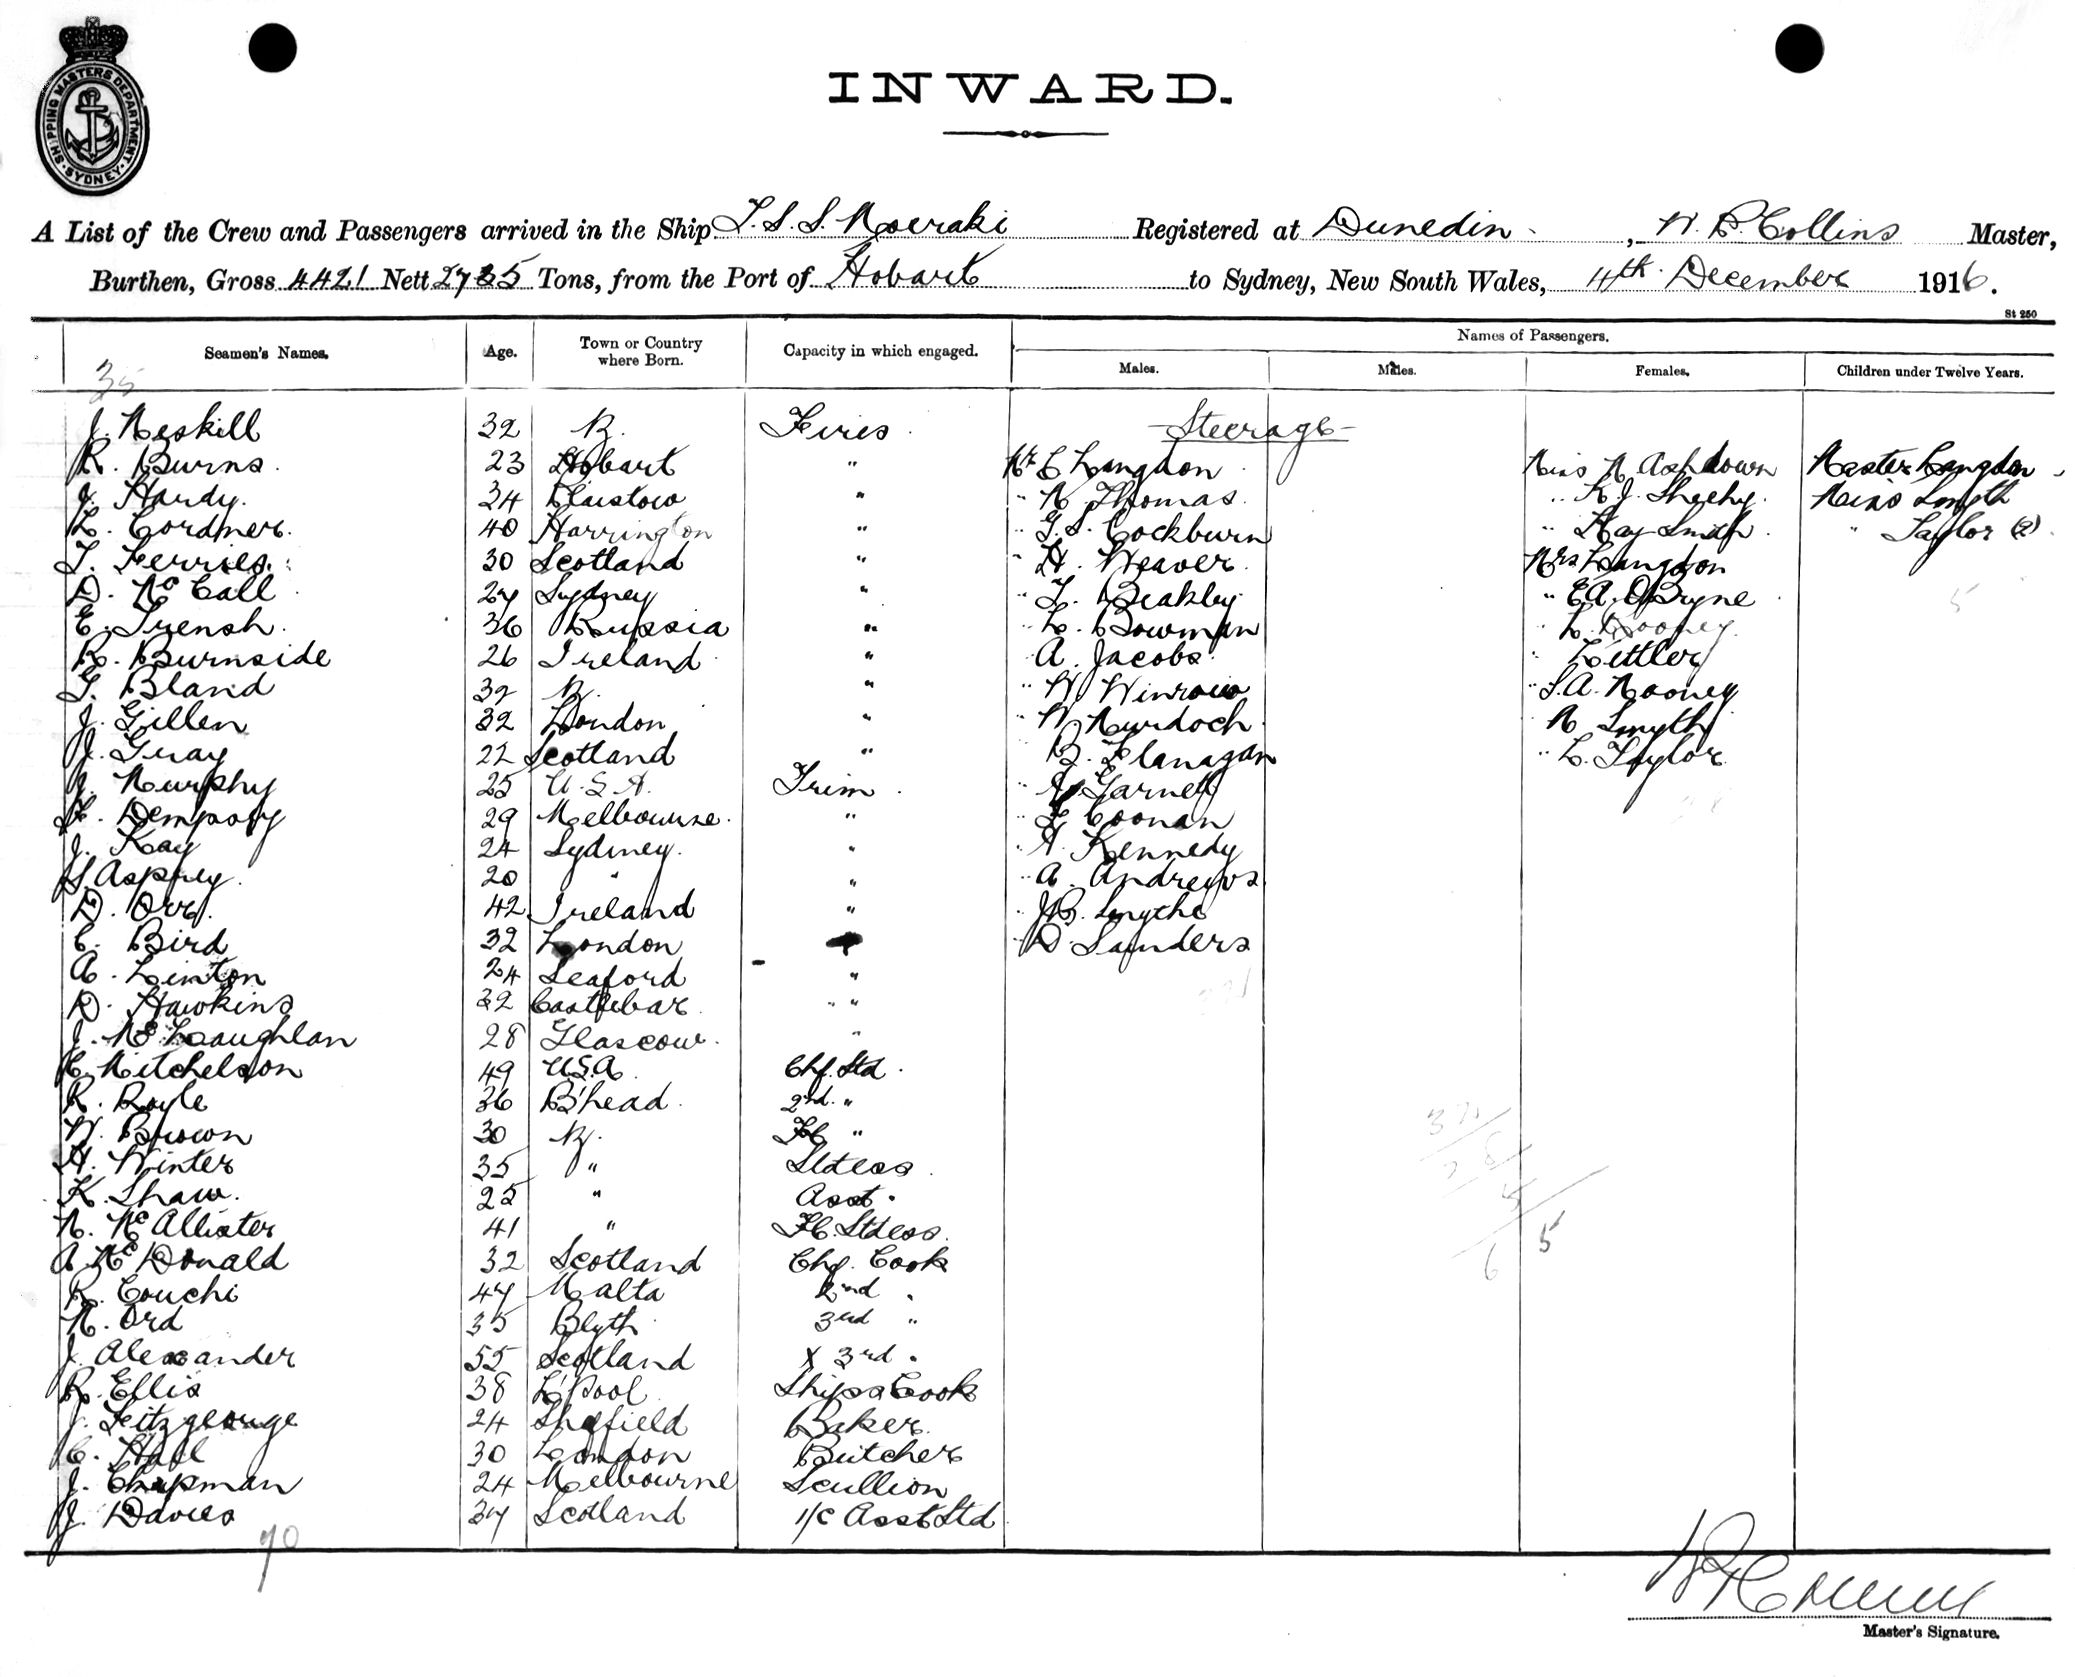 SHIPPING MASTERS DEPARTMENT. SYDNEY
INWARD.
A List of the Crew and Passengers arrived in the Ship T.S.S. Moeraki Registered at Dunedin, W. P. Collins Master,
Burthen, Gross 4421 Nett 2735 Tons, from the Port of Hobart to Sydney, New South Wales, 4th December 1916.
St 250
Seamen's Names. Age. Town or Country where Born. Capacity in which engaged. Names of Passengers.
Males. Males. Females. Children under Twelve Years.
35
J. Meskill 32 Fires Steerage
R. Burns 23 Hobart " Mr C Langdon Miss M Ashdown Master Langdon
J. Hardy 34 " " M Thomas " K.J. Sheehy Miss Smyth
L. Cordner 40 Harrington " " G.S. Cockburn " May Smith " Taylor (2)
T. Ferries 30 Scotland " " H. Weaver Mrs Langdon
D. McCall 27 Sydney " " T. Beakley " E A OBryne 5
E. Trensh 36 Russia " " L. Bowman " L. Mooney
R. Burnside 26 Ireland " " A. Jacobs " Littler
T. Bland 32 " " W Winrow " S.A. Mooney
J. Gillen 32 London " " W Murdoch M Smyth
J. Gray 22 Scotland " " B. Flanagan " L. Taylor
J. Murphy 25 U.S.A. Trim " J Garnett
Dempsey 29 Melbourne " " Coonan
J. Kay 24 Sydney " " A Kennedy
S. Asprey 20 " " " A. Andrews
D. Orr 42 Ireland " " J.B. Smythe
C. Bird 32 London " D. Sanders
A. Linton 24 Seaford "
D. Hawkins 32 Castlebar "
J. McLaughlan 28 Glascow "
C. Mitchelson 49 U.S.A. Chf. Std
R. Royle 36 B'head 2nd "
W. Brown 30 "
H. Winter 35 " Stdess
K. Shaw 25 " Asst "
M. McAllister 41 " Stdess
A McDonald 32 Scotland Chf. Cook
R. Couchi 47 Malta 2nd "
M. Ord 35 Blyth 3rd "
J. Alexander 55 Scotland X 3rd "
R. Ellis 38 L'Pool Ships Cook
J. Fitzgeorge 24 Sheffield Baker
C. Hall 30 London Butcher
J. Chapman 24 Melbourne Scullion
J. Davies 37 Scotland 1/c Asst Std
70
5
6
Master's Signature.